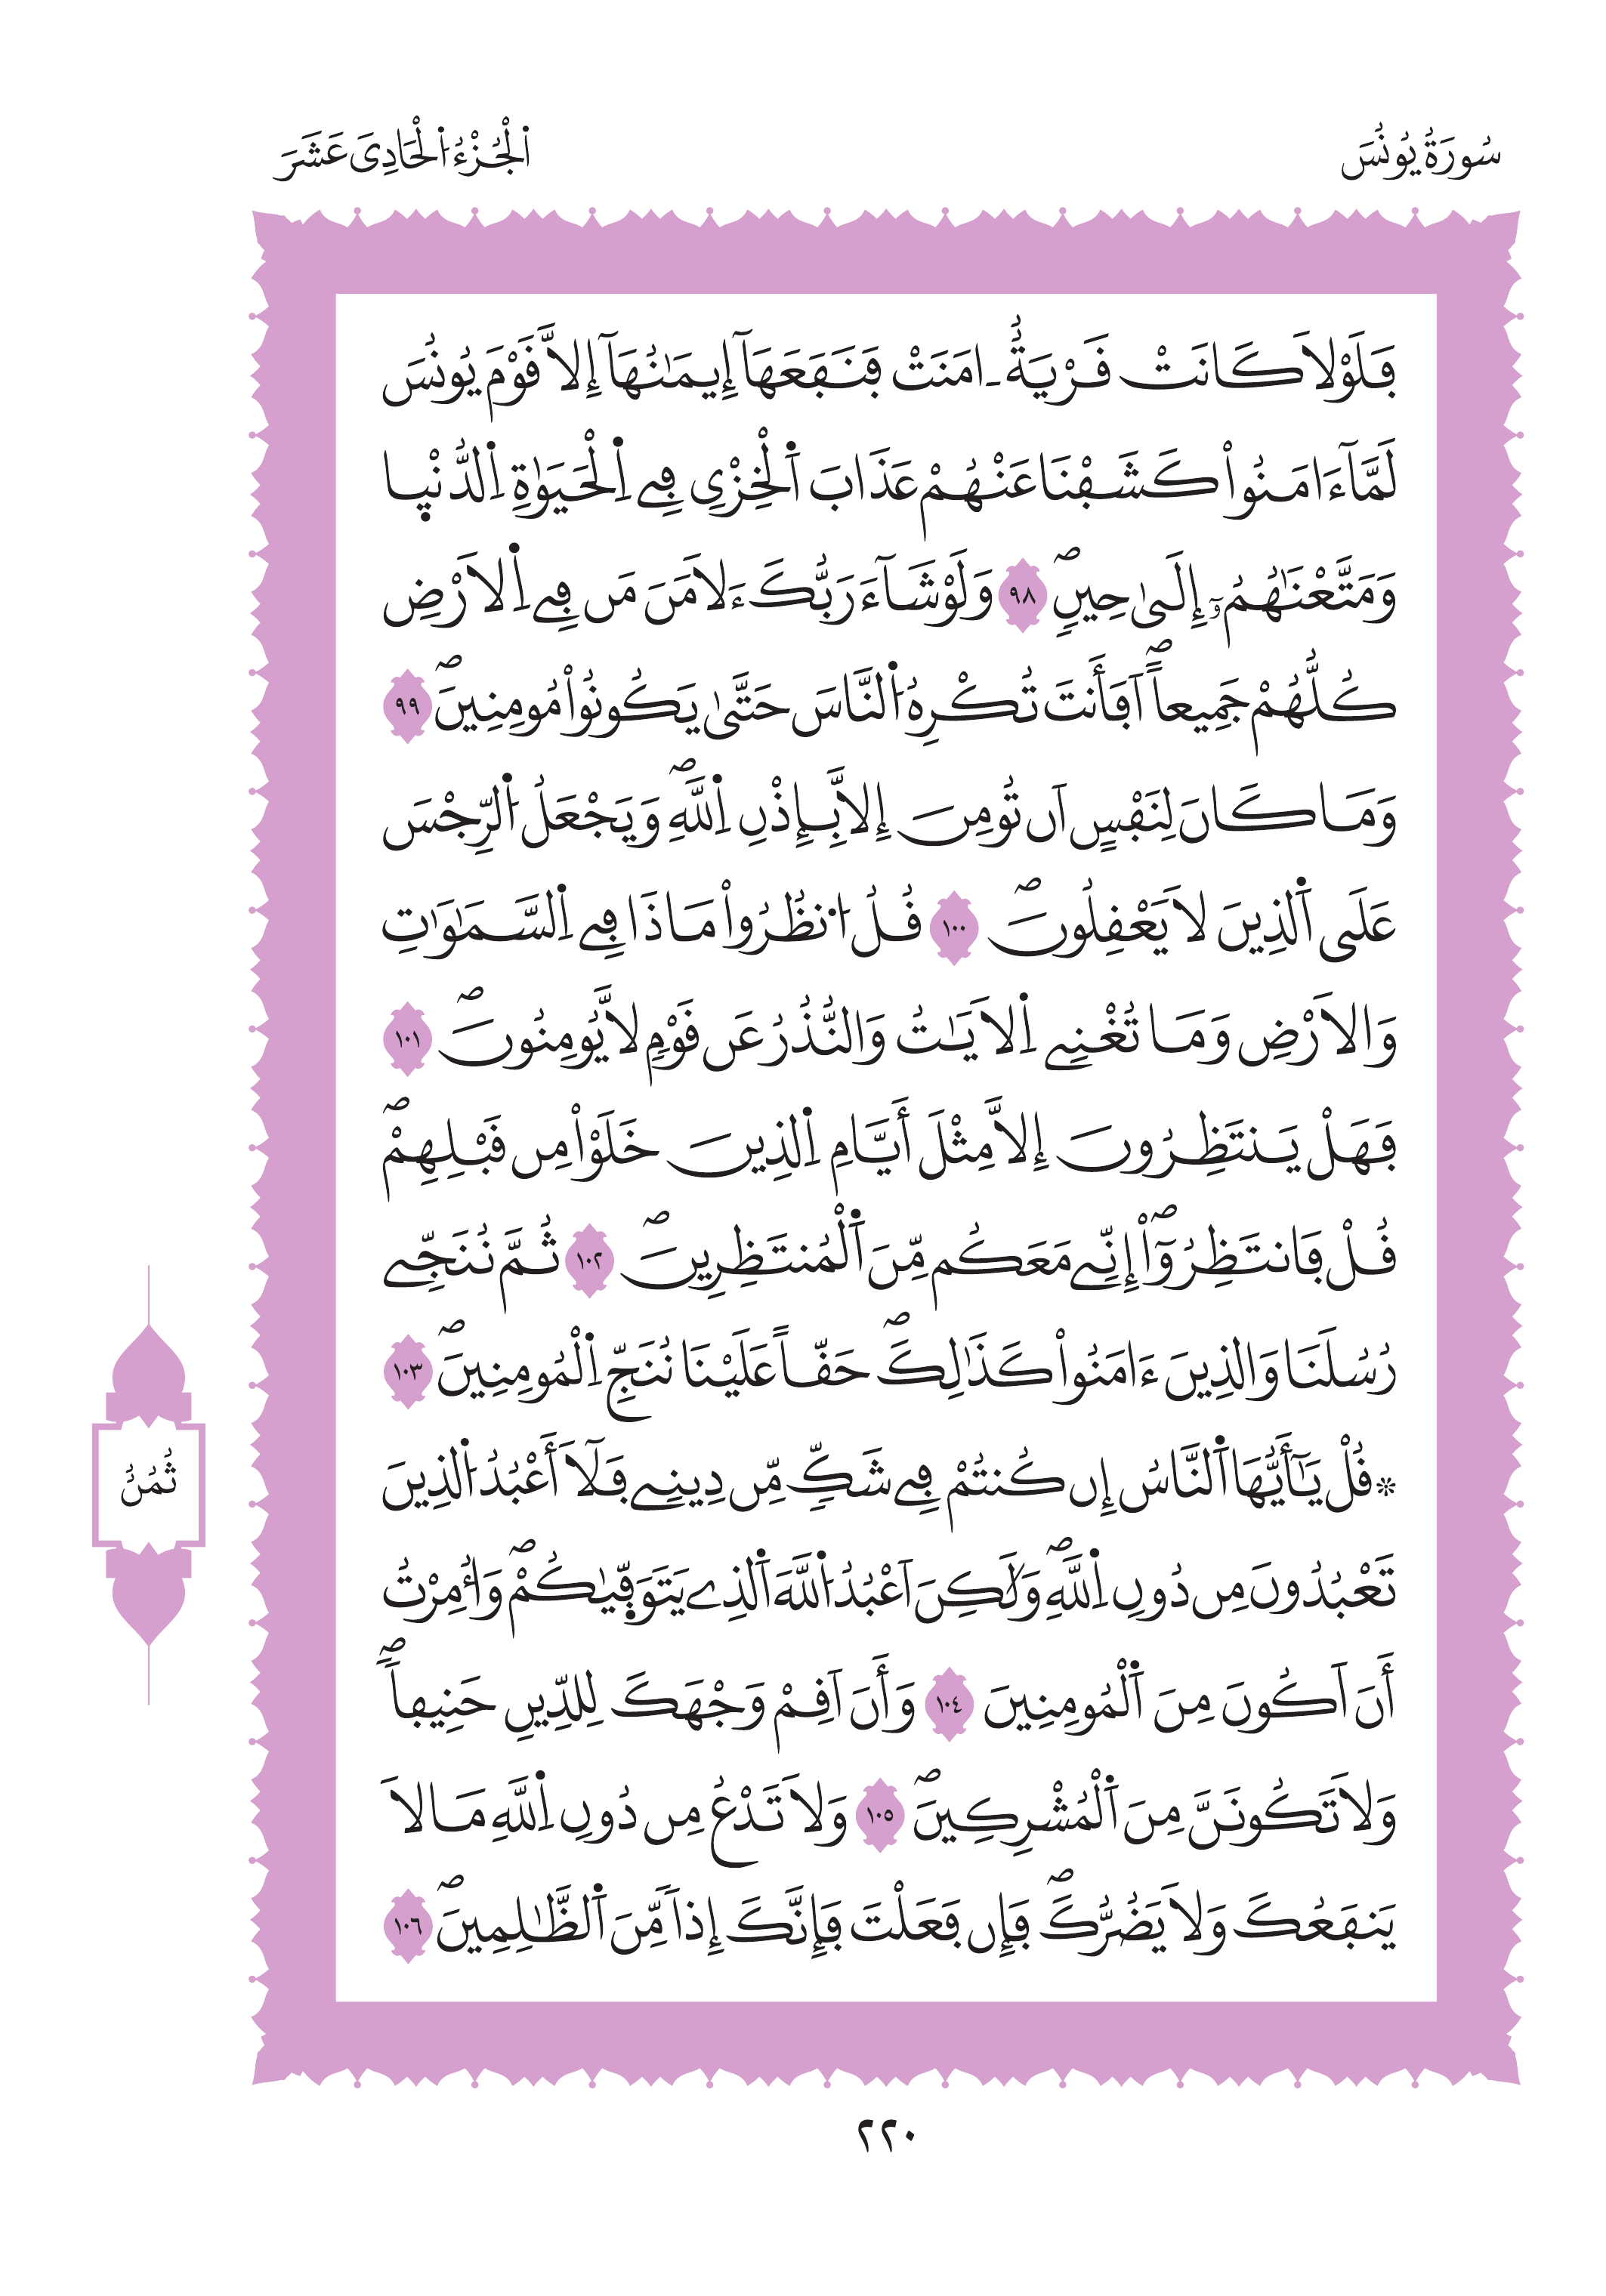 سُورَةُ يُونُسَ
اَ۬لْجُزْءُ اُ۬لْحَادِيَ عَشَرَ
فَلَوْلَا كَانَتْ قَرْيَةٌ ـ امَنَتْ فَنَفَعَهَآ إِيمَٰنُهَآ إِلَّا قَوْمَ يُونُسَ
لَمَّآ ءَامَنُواْ كَشَفْنَا عَنْهُمْ عَذَابَ اَ۬لْخِزْيِ فِے اِ۬لْحَيَوٰةِ اِ۬لدُّنْي۪ا
وَمَتَّعْنَٰهُمُۥٓ إِلَىٰ حِينٖۖ ٩٨ وَلَوْ شَآءَ رَبُّكَ ءَلَامَنَ مَن فِے اِ۬لَارْضِ
كُلُّهُمْ جَمِيعاًۖ اَفَأَنتَ تُكْرِهُ اُ۬لنَّاسَ حَتَّىٰ يَكُونُواْ مُومِنِينَۖ ٩٩
وَمَا كَانَ لِنَفْسٍ اَن تُومِنَ إِلَّا بِإِذْنِ اِ۬للَّهِۖ وَيَجْعَلُ اُ۬لرِّجْسَ
عَلَى اَ۬لذِينَ لَا يَعْقِلُونَۖ ١٠٠ قُلُ ا۟نظُرُواْ مَاذَا فِے اِ۬لسَّمَٰوَٰتِ
وَالَارْضِ وَمَا تُغْنِے اِ۬لَايَٰتُ وَالنُّذُرُ عَن قَوْمٖ لَّا يُومِنُونَۖ ١٠١
فَهَلْ يَنتَظِرُونَ إِلَّا مِثْلَ أَيَّامِ اِ۬لذِينَ خَلَوْاْ مِن قَبْلِهِمْۖ
قُلْ فَانتَظِرُوٓاْۖ إِنِّے مَعَكُم مِّنَ اَ۬لْمُنتَظِرِينَۖ ١٠٢ ثُمَّ نُنَجِّے
رُسُلَنَا وَالذِينَ ءَامَنُواْ كَذَٰلِكَۖ حَقّاً عَلَيْنَا نُنَجِّ اِ۬لْمُومِنِينَۖ ١٠٣
۞ قُلْ يَٰٓأَيُّهَا اَ۬لنَّاسُ إِن كُنتُمْ فِے شَكّٖ مِّن دِينِے فَلَآ أَعْبُدُ اُ۬لذِينَ
تَعْبُدُونَ مِن دُونِ اِ۬للَّهِۖ وَلَٰكِنَ اَعْبُدُ اُ۬للَّهَ اَ۬لذِے يَتَوَفّ۪يٰكُمْۖ وَأُمِرْتُ
أَنَ اَكُونَ مِنَ اَ۬لْمُومِنِينَ ١٠٤ وَأَنَ اَقِمْ وَجْهَكَ لِلدِّينِ حَنِيفاًۖ
وَلَا تَكُونَنَّ مِنَ اَ۬لْمُشْرِكِينَۖ ١٠٥ وَلَا تَدْعُ مِن دُونِ اِ۬للَّهِ مَا لَا
يَنفَعُكَ وَلَا يَضُرُّكَۖ فَإِن فَعَلْتَ فَإِنَّكَ إِذاٗ مِّنَ اَ۬لظَّٰلِمِينَۖ ١٠٦
ثُمُنُ
٢٢٠